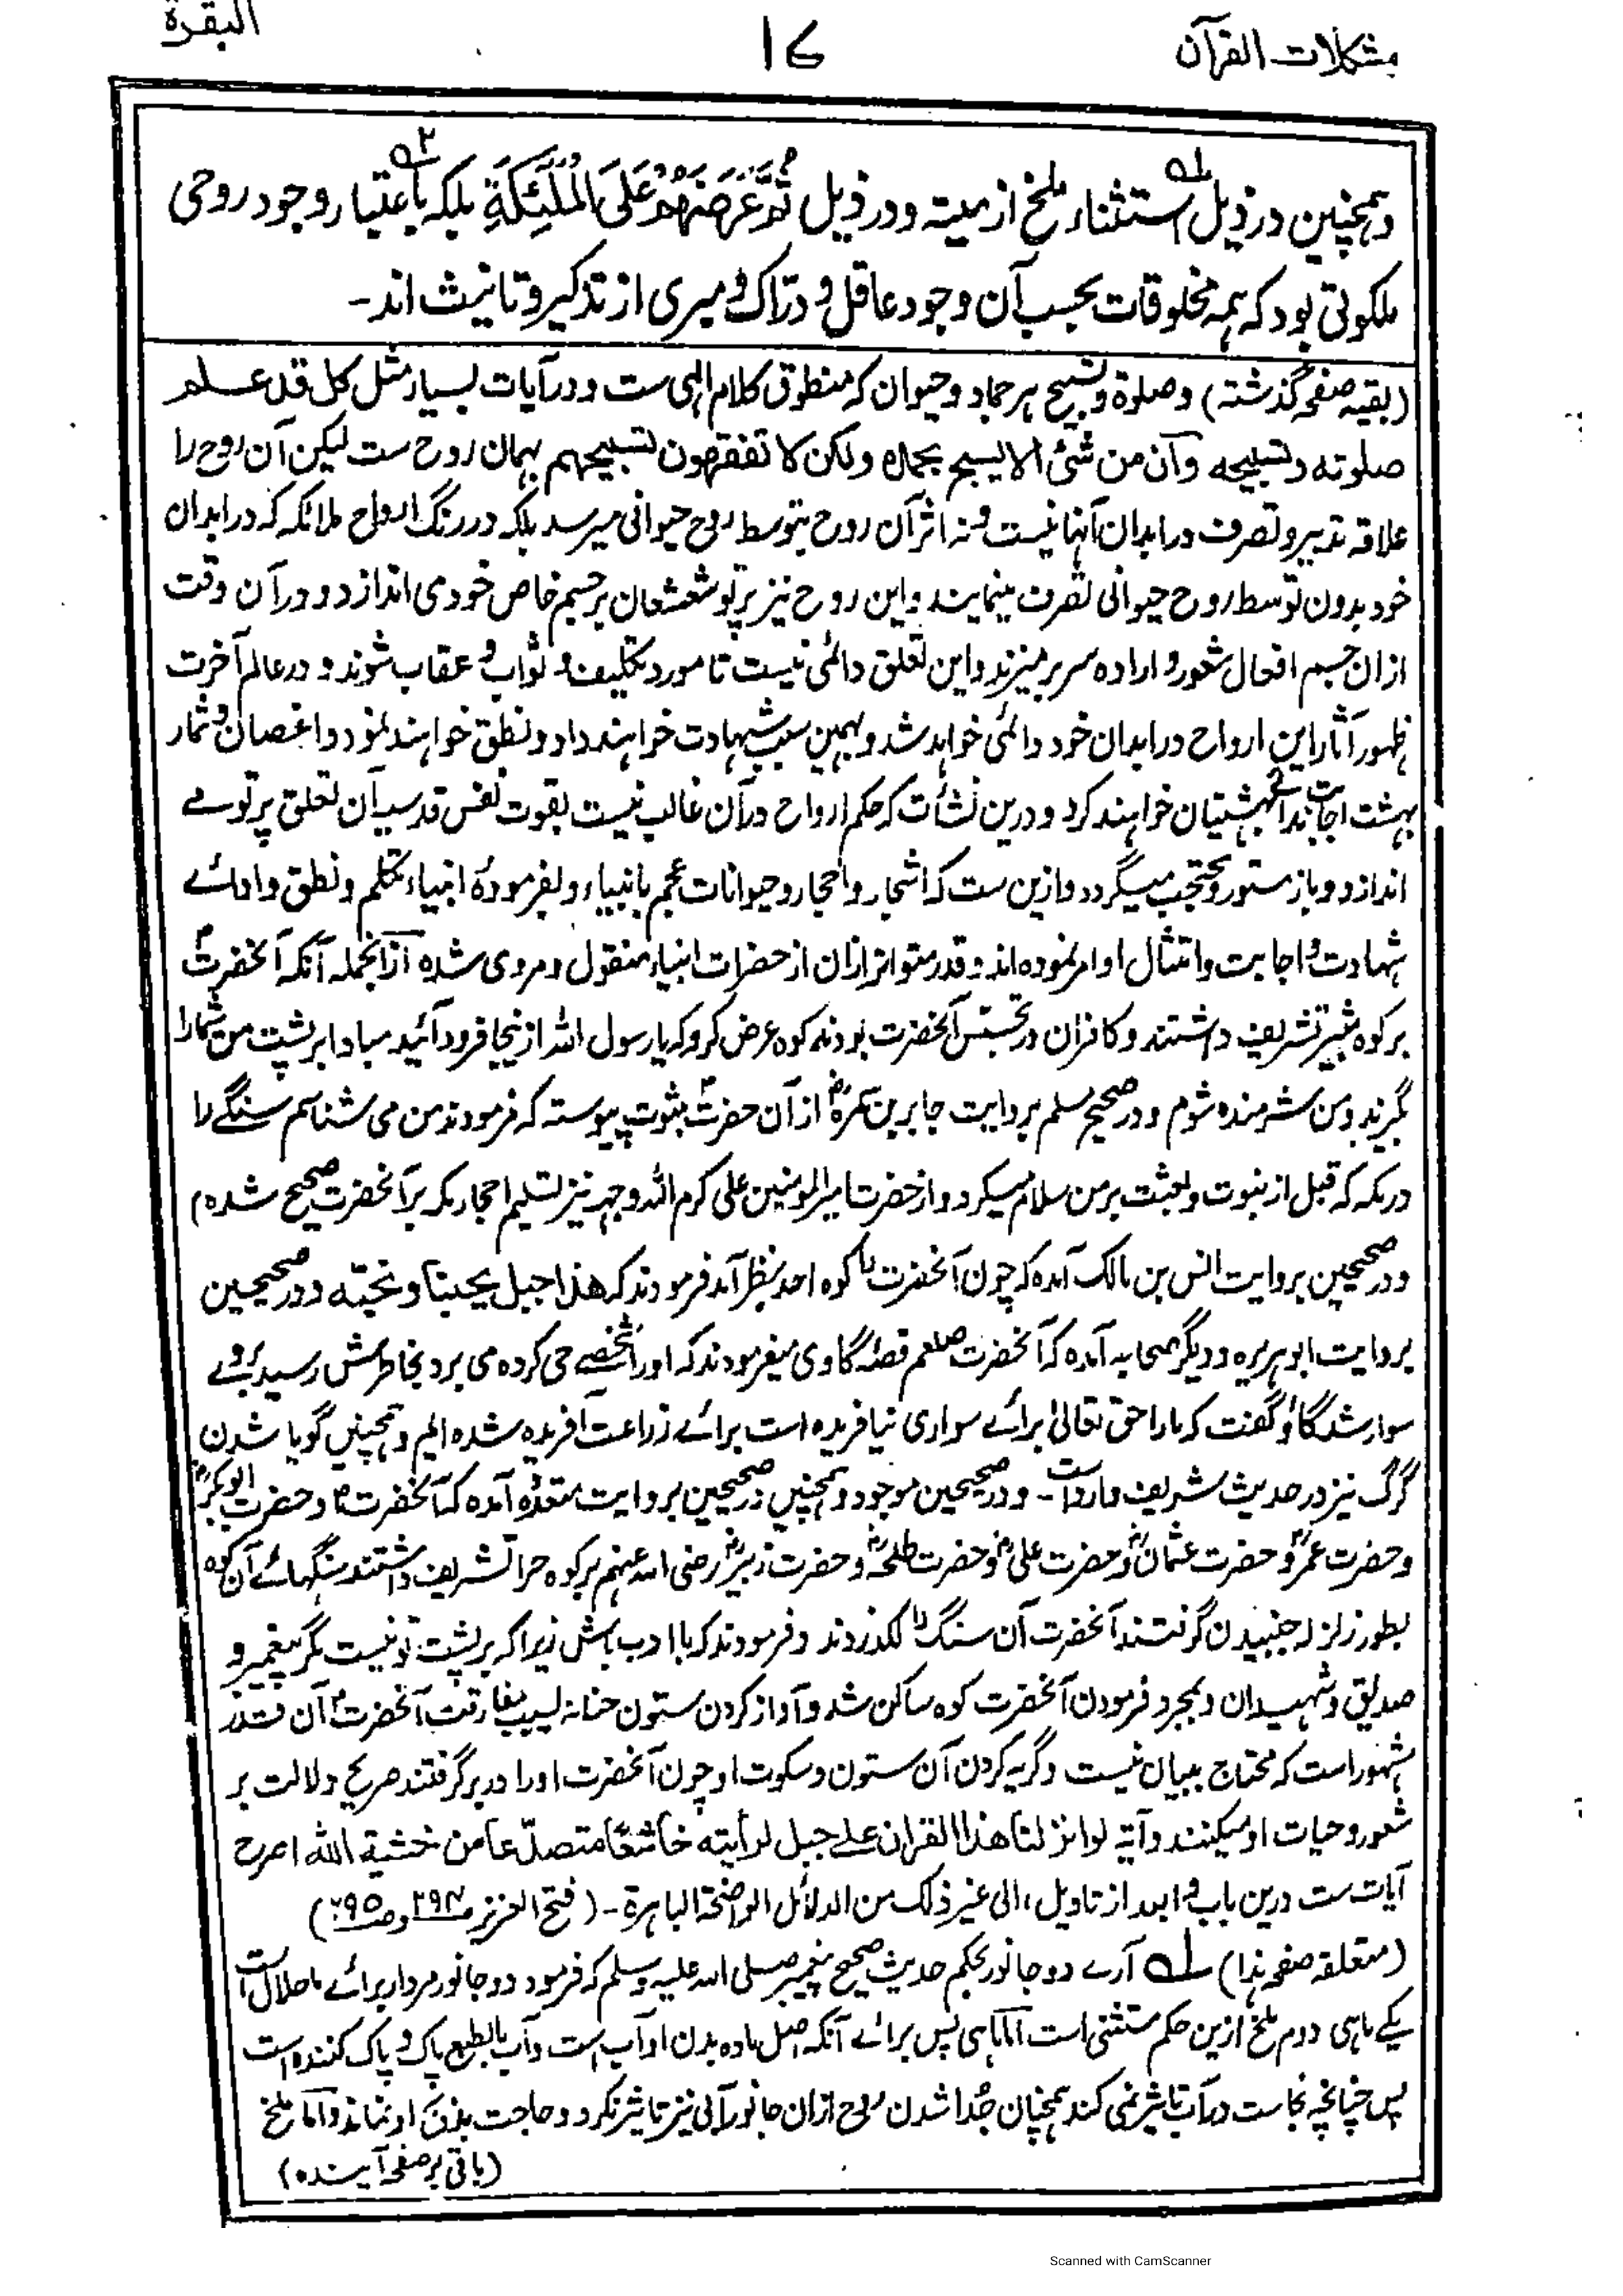 مشکلات القرآن ۱۷ البقرة
وہمچنین در ذیل استثناء ملخ از میتہ و در ذیل ثُمَّ عَرَضَهُمْ عَلَى الْمَلٰٓئِكَةِ بلکہ باعتبار وجود روحی
ملکوتی بود کہ ہمہ مخلوقات بحسب آن وجود عاقل و درّاک و مبری از تذکیر و تانیث اند۔
(بقیہ صفحہ گذشتہ) وصلوة وتسبیح ہر جماد وحیوان کہ منطوق کلام الٰہی ست ودر آیات بسیار مثل کل قد علم
صلوته وتسبیحه وآن من شئ الا یسبح بحمده ولکن لا تفقهون تسبیحهم بہمان روح ست لیکن آن روح را
علاقہ تدبیر وتصرف در ابدان آنہا نیست ونہ اثر آن روح بتوسط روح حیوانی میرسد بلکہ در رنگ ارواح ملائکہ کہ در ابدان
خود بدون توسط روح حیوانی تصرف مینمایند واین روح نیز پرتو شعشعان بر جسم خاص خود می اندازد ودر آن وقت
ازان جسم افعال شعور وارادہ سر بر میزند واین تعلق دائمی نیست تا مورد تکلیف و ثواب و عقاب شوند ودر عالم آخرت
ظہور آثار این ارواح در ابدان خود دائمی خواہد شد وبہمین سبب شہادت خواہند داد ونطق خواہند نمود واغصان وثمار
بہشت اجابت ندائے بہشتیان خواہند کرد ودرین نشأت کہ حکم ارواح در آن غالب نیست بقوت نفس قدسیہ آن تعلق پرتوے
اندازد وباز مستور ومحتجب میگردد وازین ست کہ اشجار واحجار وحیوانات عجم بانبیاء وبفرمودۂ انبیاء تکلم ونطق وادائے
شہادت واجابت وامتثال اوامر نمودہ اند وقدر متواتر ازان از حضرات انبیاء منقول ومروی شدہ ازانجملہ آنکہ آنحضرتؐ
بر کوہ ثبیر تشریف داشتند وکافران در تجسّس آنحضرت بودند کوہ عرض کرد کہ یا رسول اللہ ازینجا فرود آئید مبادا بر پشت من شمارا
بگیرند ومن شرمندہ شوم ودر صحیح مسلم بروایت جابر بن سمرہؓ از آن حضرتؐ بثبوت پیوستہ کہ فرمودند من می شناسم سنگے را
در مکہ کہ قبل از نبوت وبعثت بر من سلام میکرد واز حضرت امیر المومنین علی کرم اللہ وجہہ نیز تسلیم احجار مکہ بر آنحضرت صحیح شدہ
ودر صحیحین بروایت انس بن مالک آمدہ کہ چون آنحضرت را کوہ احد بنظر آمد فرمودند کہ هذا جبل یحبنا ونحبّه ودر صحیحین
بروایت ابو ہریرہ ودیگر صحابہ آمدہ کہ آنحضرت صلعم قصۂ گاوی میفرمودند کہ اورا شخصے حی کردہ می برد بخاطرش رسید بروے
سوار شد گاو گفت کہ مارا حق تعالیٰ برائے سواری نیافریدہ است برائے زراعت آفریدہ شدہ ایم وہمچنیں گویا شدن
گرگ نیز در حدیث شریف وارد است۔ ودر صحیحین موجود وہمچنیں در صحیحین بروایت متعددہ آمدہ کہ آنحضرتؐ وحضرت ابوبکرؓ
وحضرت عمرؓ وحضرت عثمانؓ وحضرت علیؓ وحضرت طلحہؓ وحضرت زبیرؓ رضی اللہ عنہم بر کوہ حرا تشریف داشتند سنگہائے آن کوہ
بطور زلزلہ جنبیدن گرفتند آنحضرت آن سنگ را لکد زدند وفرمودند کہ با ادب باش زیرا کہ بر پشت تو نیست مگر پیغمبر و
صدیق وشہیدان وبمجرد فرمودن آنحضرت کوہ ساکن شد وآواز کردن ستون حنانہ بسبب مفارقت آنحضرتؐ آن قدر
مشہور است کہ محتاج بیان نیست وگریہ کردن آن ستون وسکوت او چون آنحضرت اورا در بر گرفتند صریح دلالت بر
شعور وحیات او میکنند وآیۃ لو انزلنا هذا القران علے جبل لرأیته خاشعًا متصدّعا من خشیة الله اصرح
آیات ست درین باب و ابعد از تاویل، الی غیر ذلک من الدلائل الواضحۃ الباہرۃ۔ (فتح العزیز صـ۲۹۴ وصـ۲۹۵)
(متعلقہ صفحہ ہذا) لـه آرے دو جانور بحکم حدیث صحیح پیغمبر صلی اللہ علیہ وسلم کہ فرمود دو جانور مردار برائے ما حلال است
یکے ماہی دوم ملخ ازین حکم مستثنی است امّا ماہی پس برائے آنکہ اصل مادہ بدن او آب است وآب بالطبع پاک و پاک کنندہ است
پس چنانچہ نجاست در آب تاثیر نمی کند ہمچنان جُدا شدن روح ازان جانور آبی نیز تاثیر نکرد وحاجت بذبح او نماند وامّا ملخ
(باقی بر صفحہ آیندہ)
Scanned with CamScanner